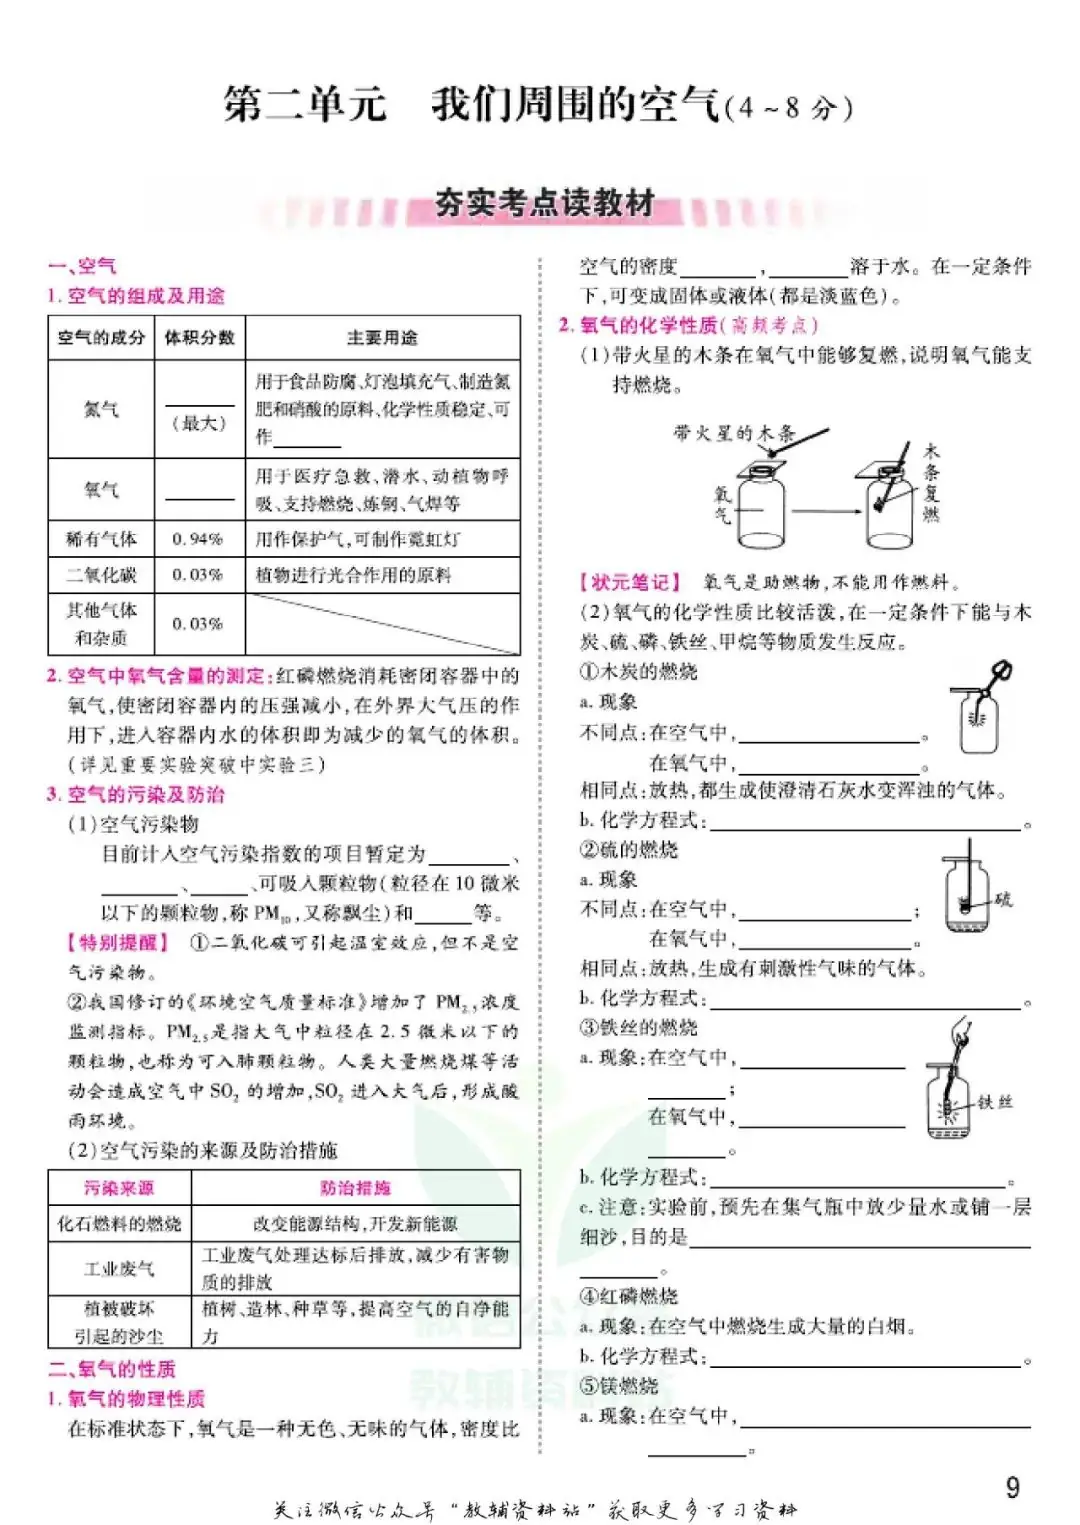 第二单元　我们周围的空气(4~8分)
夯实考点读教材
一、空气
1. 空气的组成及用途
空气的成分 体积分数 主要用途
氮气 ________(最大) 用于食品防腐、灯泡填充气、制造氮
肥和硝酸的原料、化学性质稳定、可
作________
氧气 ________ 用于医疗急救、潜水、动植物呼
吸、支持燃烧、炼钢、气焊等
稀有气体 0.94% 用作保护气,可制作霓虹灯
二氧化碳 0.03% 植物进行光合作用的原料
其他气体
和杂质 0.03%
2. 空气中氧气含量的测定:红磷燃烧消耗密闭容器中的
氧气,使密闭容器内的压强减小,在外界大气压的作
用下,进入容器内水的体积即为减少的氧气的体积。
(详见重要实验突破中实验三)
3. 空气的污染及防治
(1)空气污染物
目前计入空气污染指数的项目暂定为________、
________、______、可吸入颗粒物(粒径在10微米
以下的颗粒物,称PM10,又称飘尘)和______等。
【特别提醒】 ①二氧化碳可引起温室效应,但不是空
气污染物。
②我国修订的《环境空气质量标准》增加了PM2.5浓度
监测指标。PM2.5是指大气中粒径在2.5微米以下的
颗粒物,也称为可入肺颗粒物。人类大量燃烧煤等活
动会造成空气中SO2的增加,SO2进入大气后,形成酸
雨环境。
(2)空气污染的来源及防治措施
污染来源 防治措施
化石燃料的燃烧 改变能源结构,开发新能源
工业废气 工业废气处理达标后排放,减少有害物
质的排放
植被破坏
引起的沙尘 植树、造林、种草等,提高空气的自净能
力
二、氧气的性质
1. 氧气的物理性质
在标准状态下,氧气是一种无色、无味的气体,密度比
空气的密度________,________溶于水。在一定条件
下,可变成固体或液体(都是淡蓝色)。
2. 氧气的化学性质(高频考点)
(1)带火星的木条在氧气中能够复燃,说明氧气能支
持燃烧。
带火星的木条
氧气
木条复燃
【状元笔记】 氧气是助燃物,不能用作燃料。
(2)氧气的化学性质比较活泼,在一定条件下能与木
炭、硫、磷、铁丝、甲烷等物质发生反应。
①木炭的燃烧
a. 现象
不同点:在空气中,________________。
在氧气中,________________。
相同点:放热,都生成使澄清石灰水变浑浊的气体。
b. 化学方程式:________________。
②硫的燃烧
a. 现象
不同点:在空气中,________________;
在氧气中,________________。
硫
相同点:放热,生成有刺激性气味的气体。
b. 化学方程式:________________。
③铁丝的燃烧
a. 现象:在空气中,________________
________;
在氧气中,________________
________。
铁丝
b. 化学方程式:________________。
c. 注意:实验前,预先在集气瓶中放少量水或铺一层
细沙,目的是________________
________。
④红磷燃烧
a. 现象:在空气中燃烧生成大量的白烟。
b. 化学方程式:________________。
⑤镁燃烧
a. 现象:在空气中,________________
________。
9
关注微信公众号“教辅资料站”获取更多学习资料